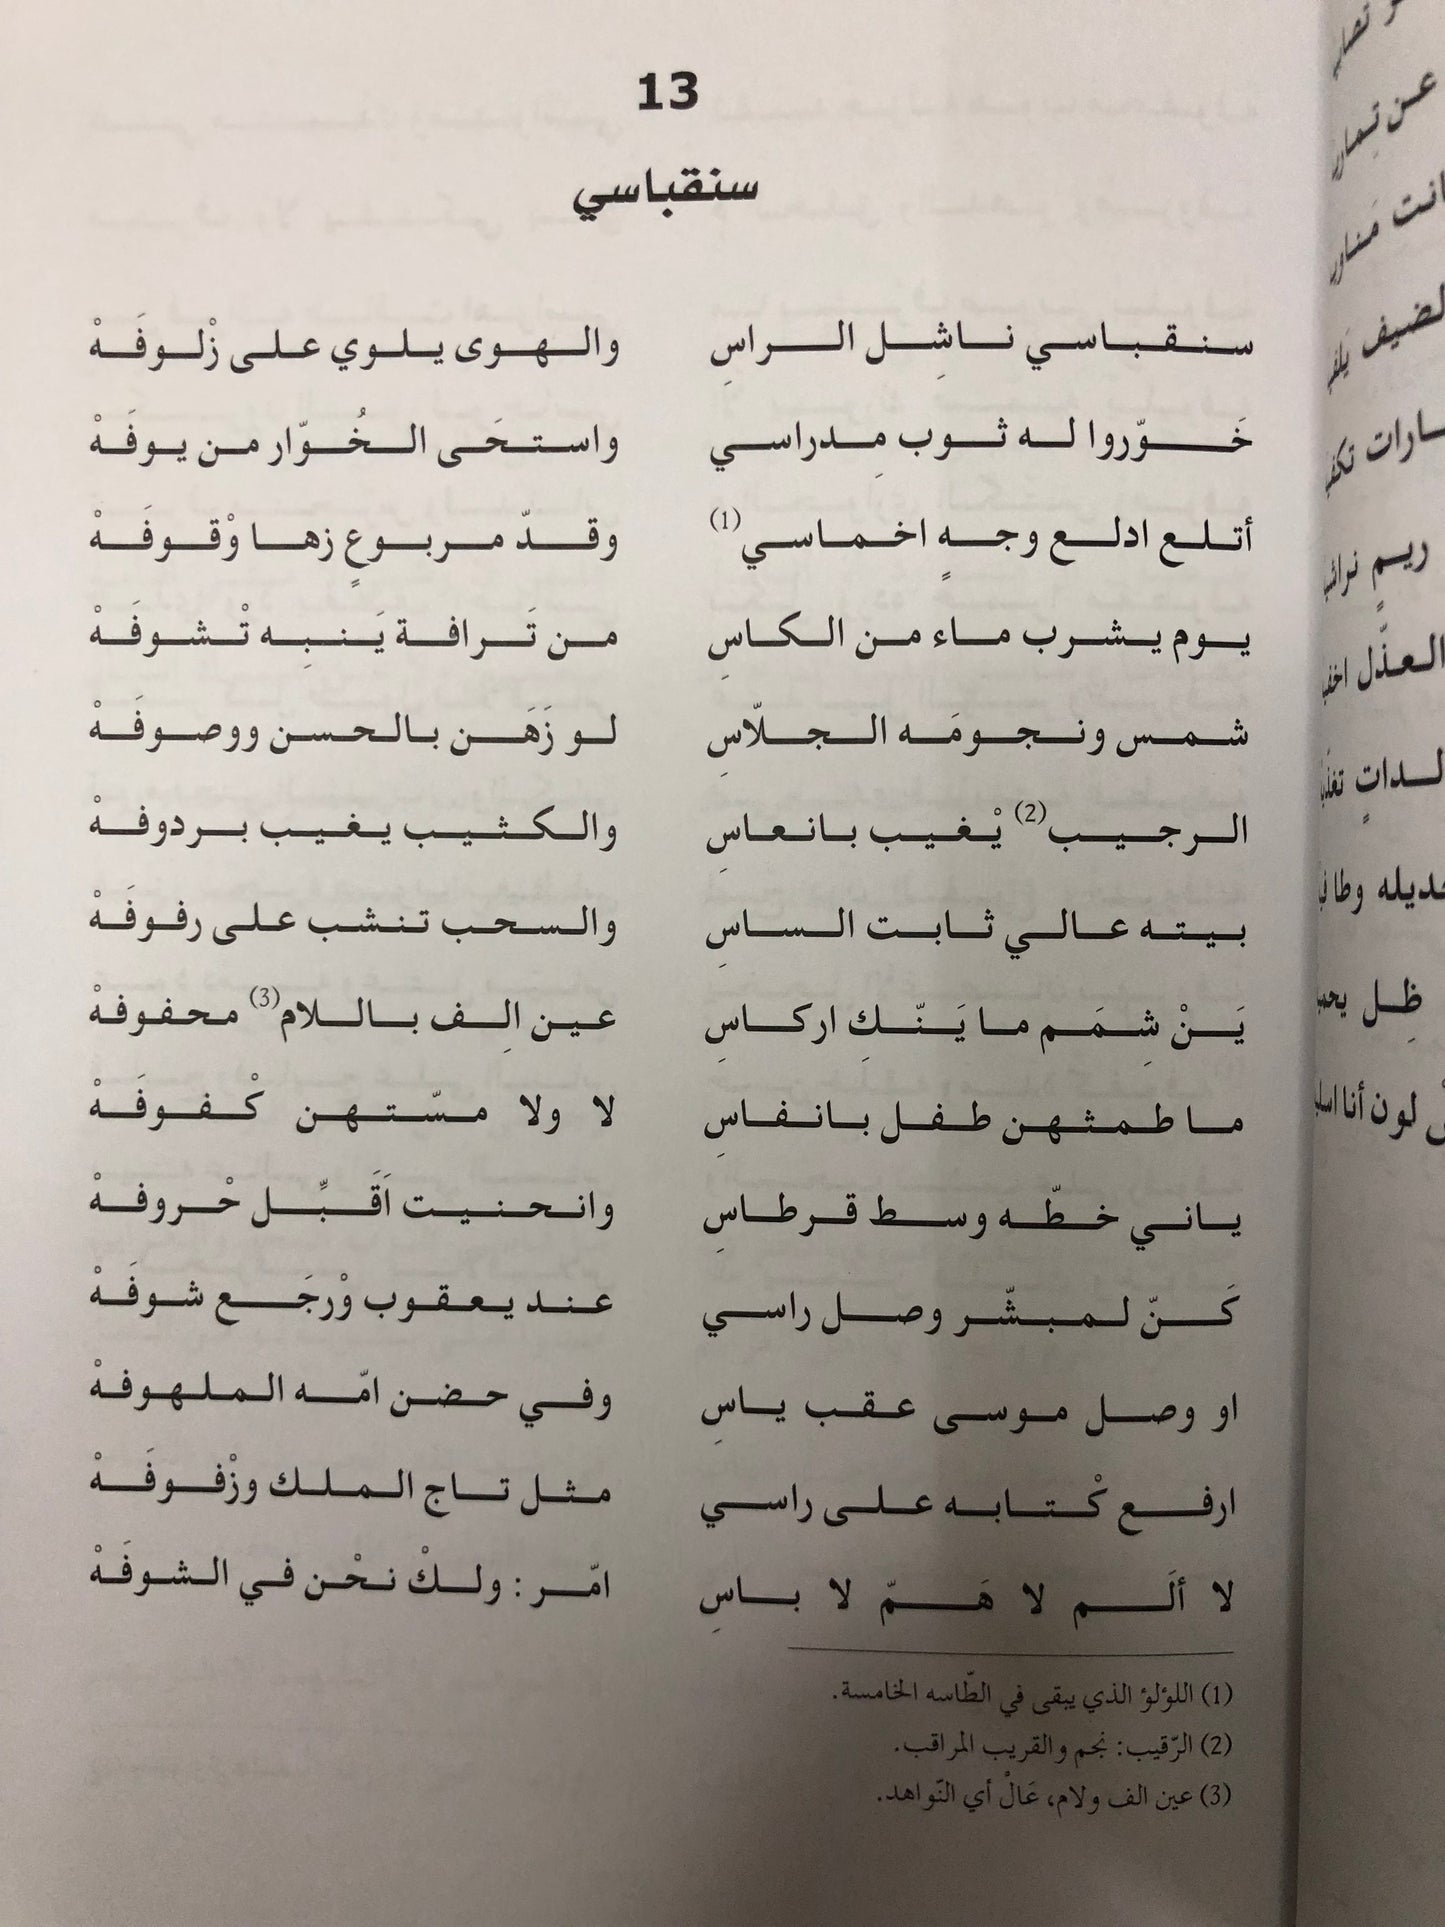 13
سنقباسي
سنقباسي ناشِل الراسِ والهوى يلوي على زْلوفَهْ
خَوّروا له ثوب مِدراسي واستحَى الخُوّار من يوفَهْ
أتلع ادلع وجهٍ اخماسي(1) وقدّ مربوعٍ زها وْقوفَهْ
يوم يشرب ماء من الكاسِ من تَرافة يَنبِه تْشوفَهْ
شمس ونجومَه الجلّاسِ لو زَهَن بالحسن ووصوفَهْ
الرجيب(2) يْغيب بانعاسِ والكثيب يغيب بردوفهْ
بيته عالي ثابت الساسِ والسحب تنشب على رفوفَهْ
يَنْ شِمَم ما يَنّكِ اركاسِ عين الِف باللام(3) محفوفهْ
ما طمثهن طفل بانفاسِ لا ولا مسّتهن كْفوفَهْ
ياني خطّه وسط قرطاسِ وانحنيت اَقَبِّل حْروفهْ
كَنّ لمبشّر وصل راسي عند يعقوب وْرجَع شوفَهْ
او وصل موسى عقب ياسِ وفي حضن امّه الملهوفهْ
ارفع كْتابه على راسي مثل تاج الملك وزْفوفَهْ
لا ألَم لا هَمّ لا باسِ امّر : ولكْ نحْن في الشوفَهْ
(1) اللؤلؤ الذي يبقى في الطّاسه الخامسة.
(2) الرّقيب: نجم والقريب المراقب.
(3) عين الف ولام، عَالْ أي النّواهد.